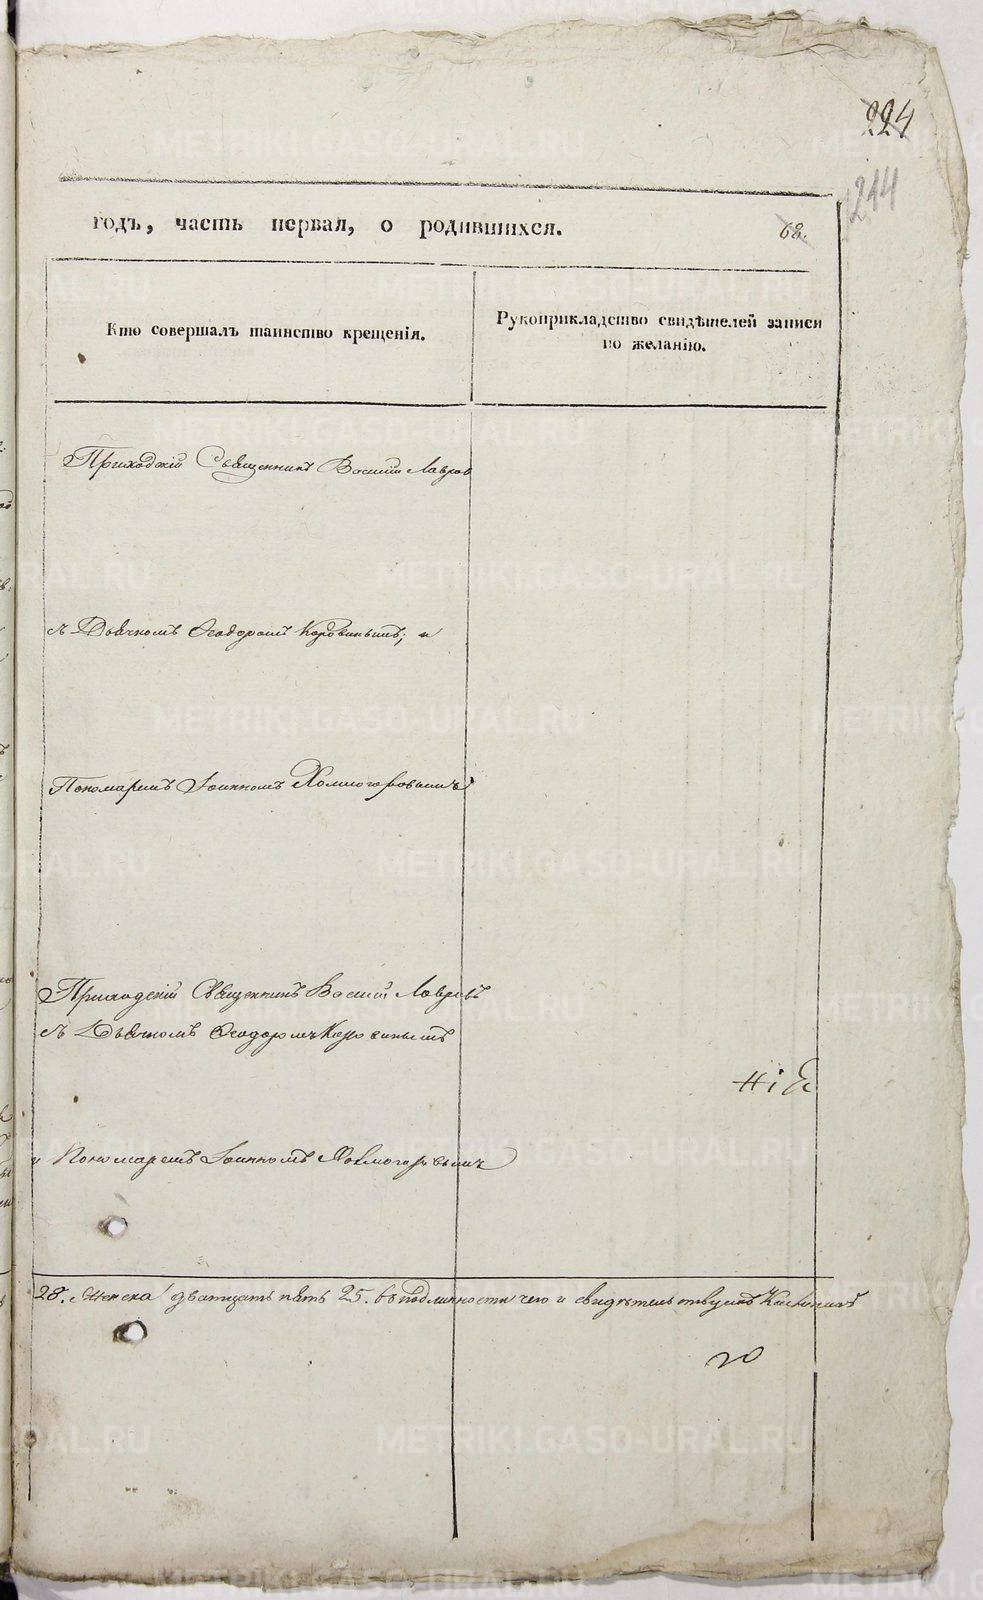 224
244
годъ, часть первая, о родившихся.
68.
Кто совершалъ таинство крещенія.
Рукоприкладство свидѣтелей записи
по желанію.
Приходскій Священникъ Василій Лавров
съ Дьячкомъ Ѳеодоромъ Коровинымъ; и
Пономаремъ Іоанномъ Холмогоровымъ
Приходскій Священникъ Василій Лавровъ
съ Дьячкомъ Ѳеодоромъ Коровинымъ
и Пономаремъ Іоанномъ Холмогоровымъ
28. женска дватцать пять 25. въ подлинности чего и свидѣтельствуемъ
METRIKI.GASO-URAL.RU